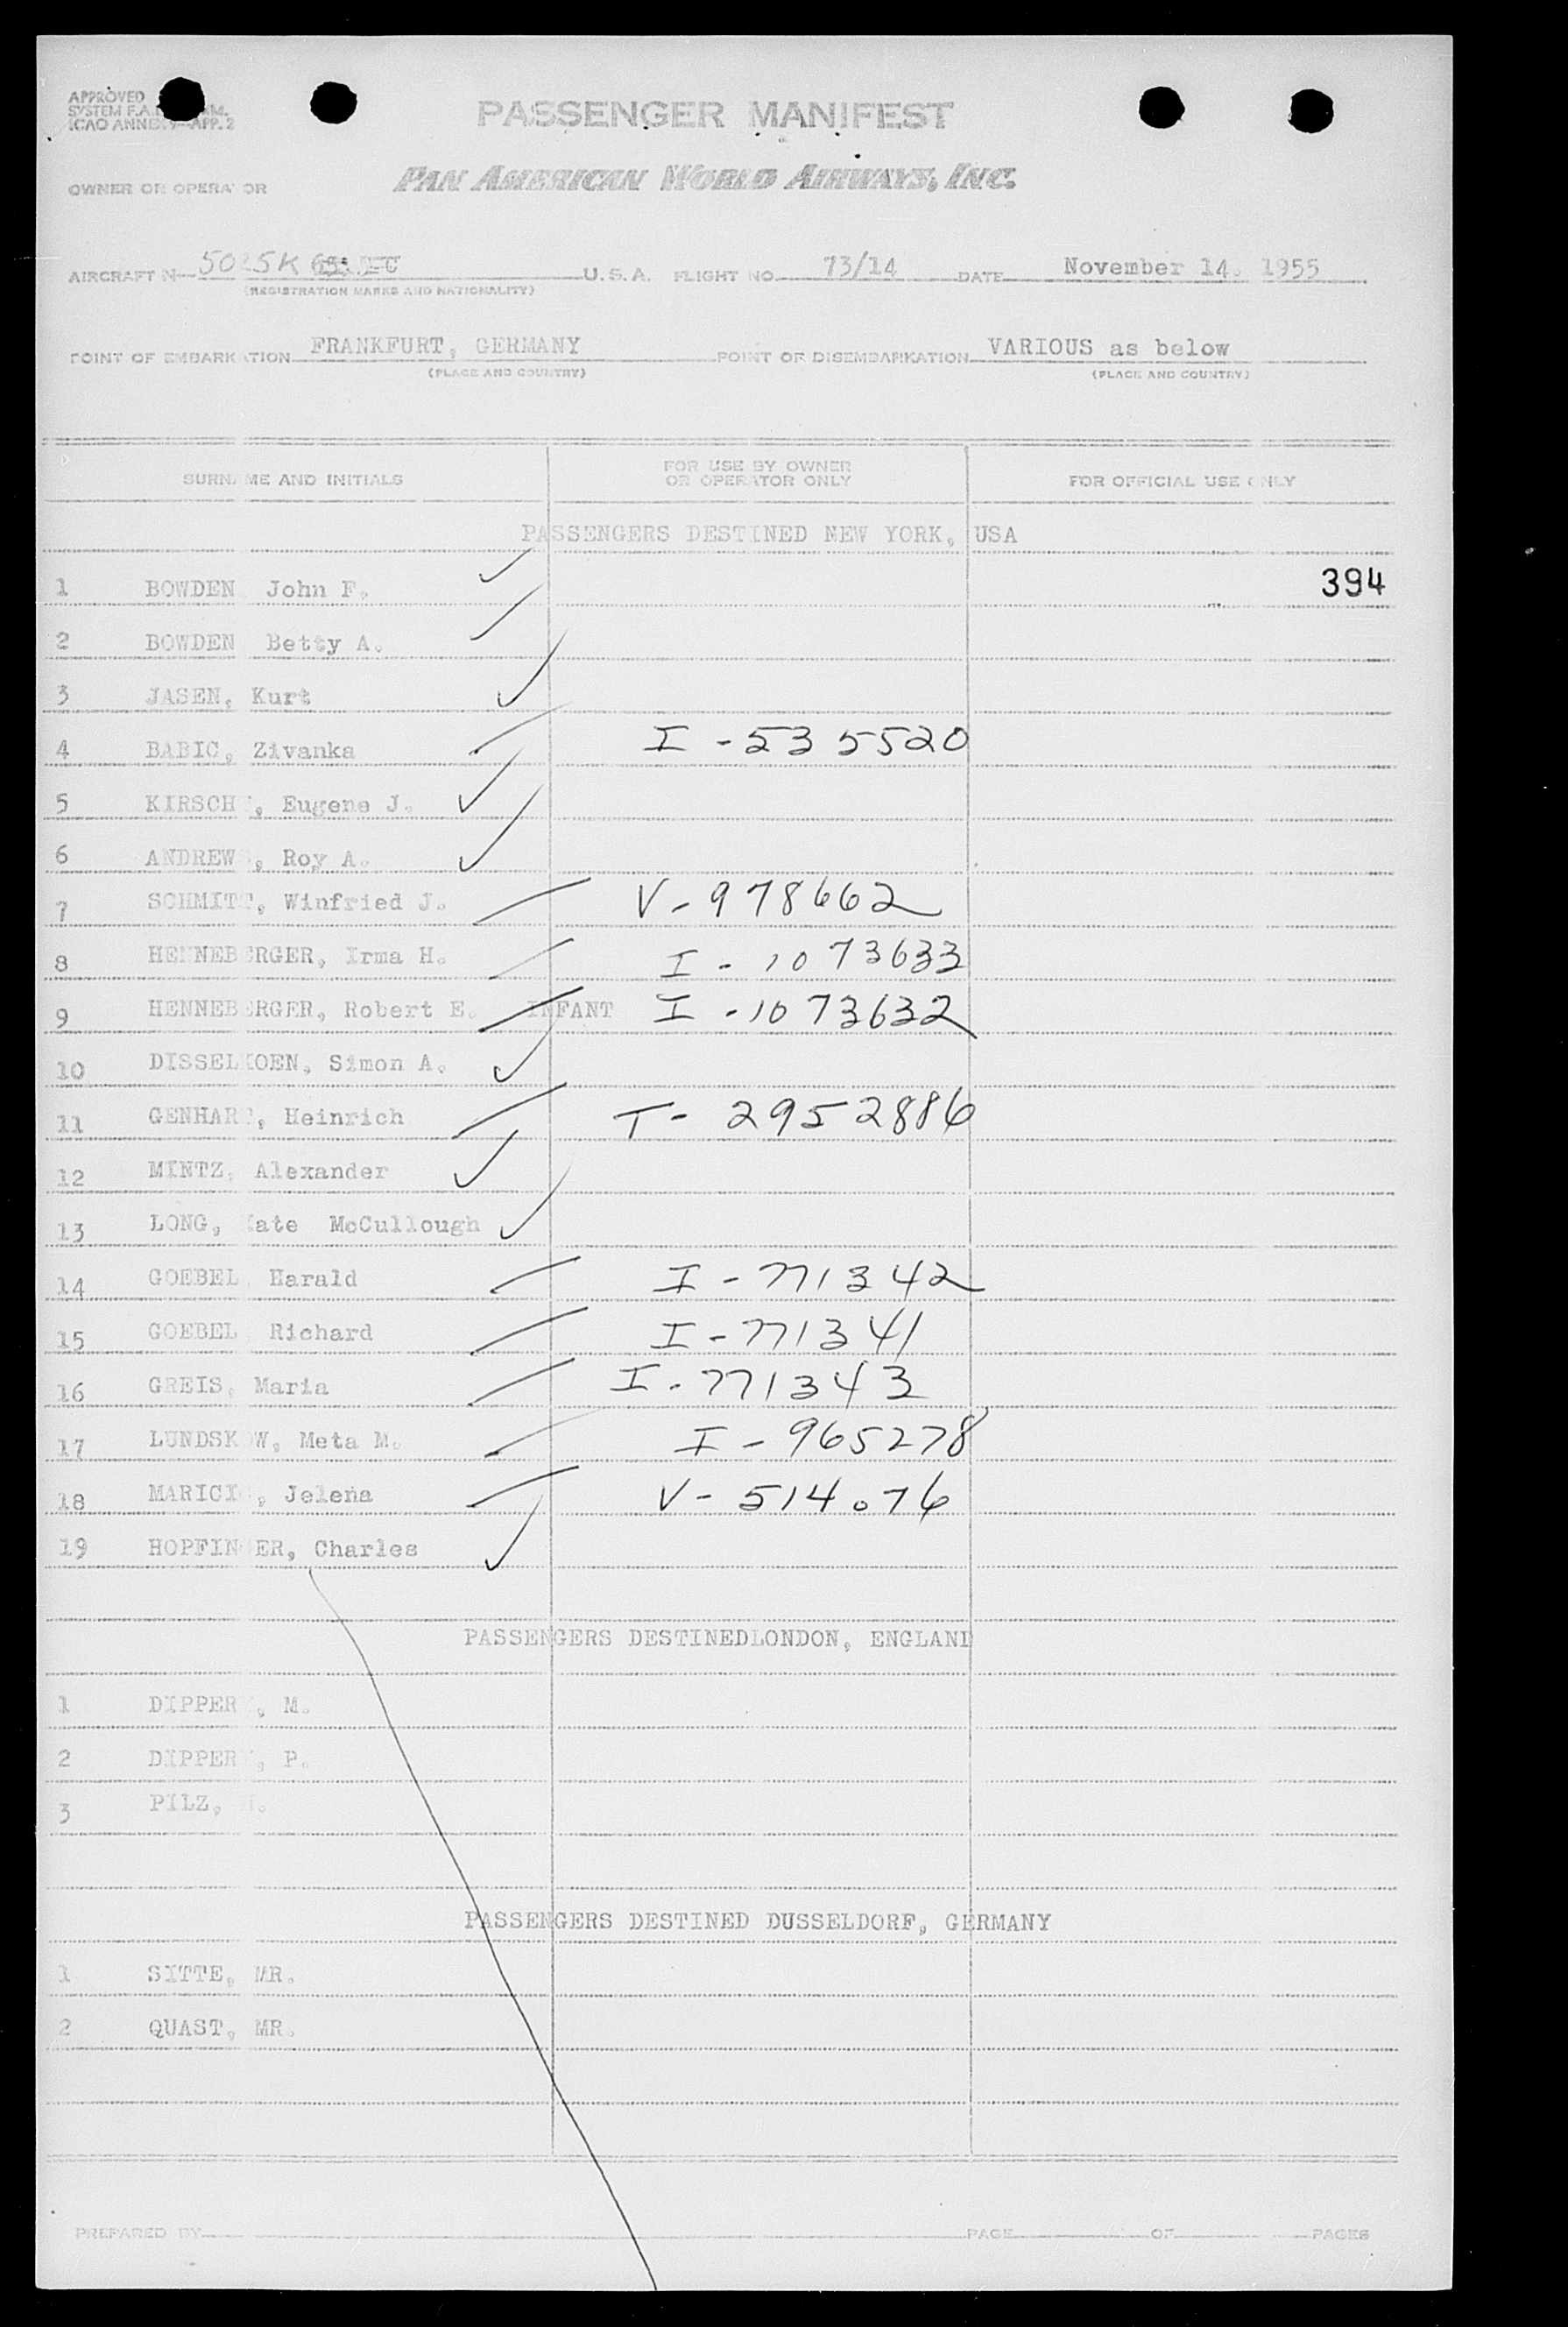 APPROVED
SYSTEM
ICAO ANNEX 9—APP. 2
PASSENGER MANIFEST
OWNER OR OPERATOR PAN AMERICAN WORLD AIRWAYS, INC.
AIRCRAFT N U.S.A. FLIGHT NO. 73/14 DATE November 14. 1955
(REGISTRATION MARKS AND NATIONALITY)
POINT OF EMBARKATION FRANKFURT, GERMANY POINT OF DISEMBARKATION VARIOUS as below
(PLACE AND COUNTRY) (PLACE AND COUNTRY)
SURNAME AND INITIALS FOR USE BY OWNER OR OPERATOR ONLY FOR OFFICIAL USE ONLY
PASSENGERS DESTINED NEW YORK, USA
1 BOWDEN John F. 394
2 BOWDEN Betty A.
3 JASEN, Kurt
4 BABIC, Zivanka I-535520
5 Eugene J.
6 ANDREWS, Roy A.
7 SCHMITT, Winfried J. V-978662
8 HENNEBERGER, Irma H. I-1073633
9 HENNEBERGER, Robert E. INFANT I-1073632
10 DISSELKOEN, Simon A.
11 Heinrich T-2952886
12 MINTZ, Alexander
13 LONG, Kate McCullough
14 GOEBEL Harald I-771342
15 GOEBEL Richard I-771341
16 GREIS, Maria I-771343
17 LUNDSKOW, Meta M. I-965278
18 Jelena V-514076
19 HOPFINGER, Charles
PASSENGERS DESTINEDLONDON, ENGLAND
1 M.
2 P.
3 PILZ,
PASSENGERS DESTINED DUSSELDORF, GERMANY
1 SITTE, MR.
2 QUAST, MR.
PREPARED BY PAGE OF PAGES